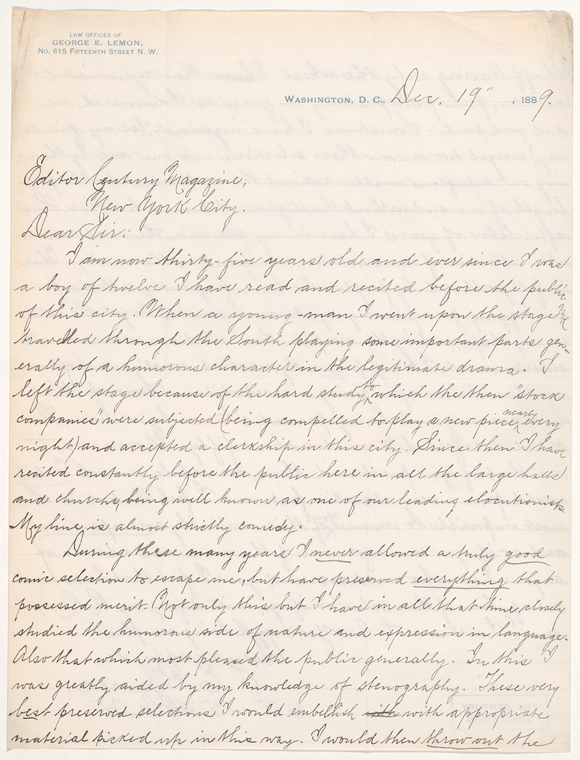 LAW OFFICES OF
GEORGE E. LEMON,
No. 615 FIFTEENTH STREET N. W.
WASHINGTON, D. C., Dec. 19" , 1889.
Editor Century Magazine,
New York City.
Dear Sir:
I am now thirty-five years old and ever since I was
a boy of twelve I have read and recited before the public
of this city. When a young-man I went upon the stage and
travelled through the South playing some important parts gen-
erally of a humorous character in the legitimate drama. I
left the stage because of the hard study to which the then "stock
companies" were subjected (being compelled to play a new piece nearly every
night) and accepted a clerkship in this city. Since then I have
recited constantly before the public here in all the large halls
and churchs, being well known as one of our leading elocutionists
My line is almost strictly comedy.
During these many years I never allowed a truly good
comic selection to escape me, but have preserved everything that
possessed merit. Not only this but I have in all that time closely
studied the humorous side of nature and expression in language.
Also that which most pleased the public generally. In this I
was greatly aided by my knowledge of stenography. These very
best preserved selections I would embellish with with appropriate
material picked up in this way. I would then throw out the